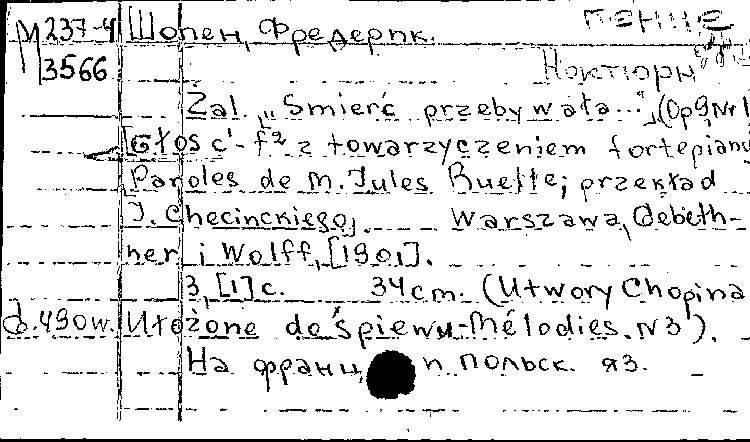 М 237-4 Шопен, Фредерик. пение
3566 Ноктюрн
Żal „Smierć przebywała...", (Op 9 Nr 1
[Głos c'-f² z towarzyczeniem fortepianu
Paroles de M. Jules Ruelle; przekład
J. Checinckiego]. Warszawa, Gebeth-
ner i Wolff, [1901].
3, [1] с. 34 cm. (Utwory Chopina
d. 490w. Ułożone do śpiewu-Mélodies. N3).
На франц и польск. яз.